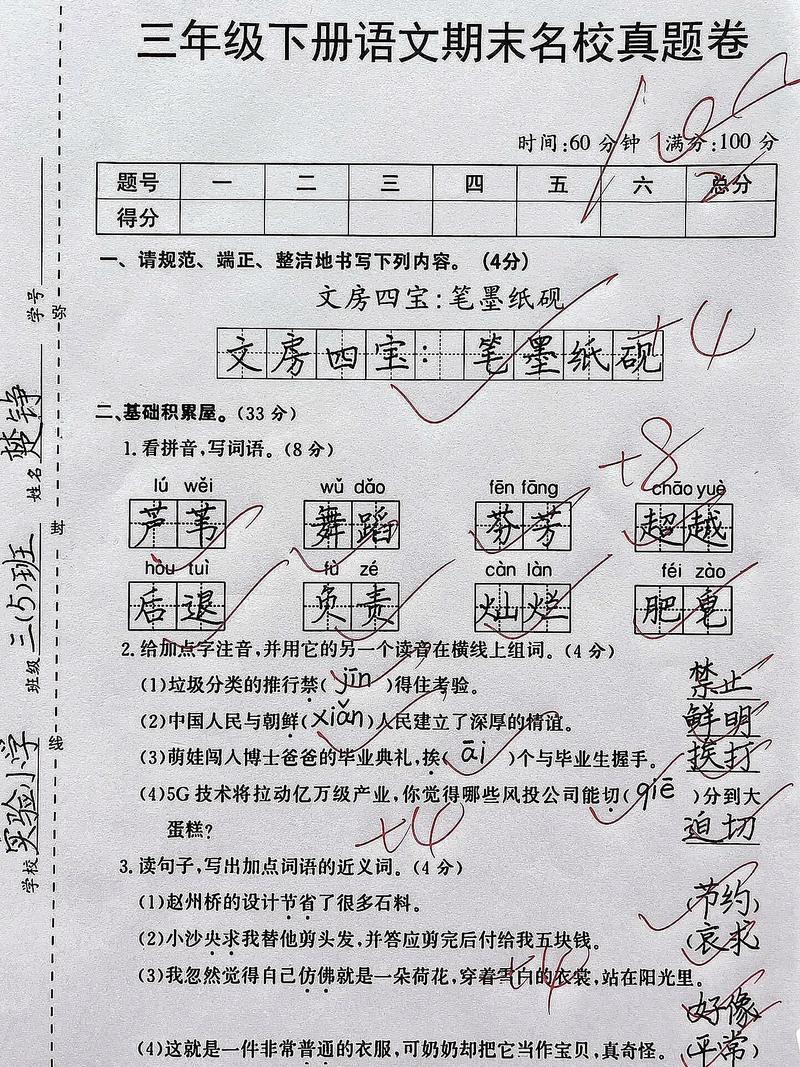 三年级下册语文期末名校真题卷
时间:60分钟 满分:100分
100
题号 一 二 三 四 五 六 总分
得分
一、请规范、端正、整洁地书写下列内容。(4分)
文房四宝:笔墨纸砚
文房四宝:笔墨纸砚
+4
二、基础积累屋。(33分)
1.看拼音,写词语。(8分)
+8
lú wěi wǔ dǎo fēn fāng chāo yuè
芦苇 舞蹈 芬芳 超越
hòu tuì fù zé càn làn féi zào
后退 负责 灿烂 肥皂
2.给加点字注音,并用它的另一个读音在横线上组词。(4分)
(1)垃圾分类的推行禁(jīn)得住考验。 禁止
(2)中国人民与朝鲜(xiǎn)人民建立了深厚的情谊。 鲜明
(3)萌娃闯入博士爸爸的毕业典礼,挨(āi)个与毕业生握手。 挨打
(4)5G技术将拉动亿万级产业,你觉得哪些风投公司能切(qiē)分到大
蛋糕? 迫切
+4
3.读句子,写出加点词语的近义词。(4分)
(1)赵州桥的设计节省了很多石料。 (节约)
(2)小沙央求我替他剪头发,并答应剪完后付给我五块钱。 (哀求
(3)我忽然觉得自己仿佛就是一朵荷花,穿着雪白的衣裳,站在阳光里。
+4
好像
(4)这就是一件非常普通的衣服,可奶奶却把它当作宝贝,真奇怪。 (平常)
学校 实验小学 班级 三(5)班 姓名 楚铮 学号
弥 封 线